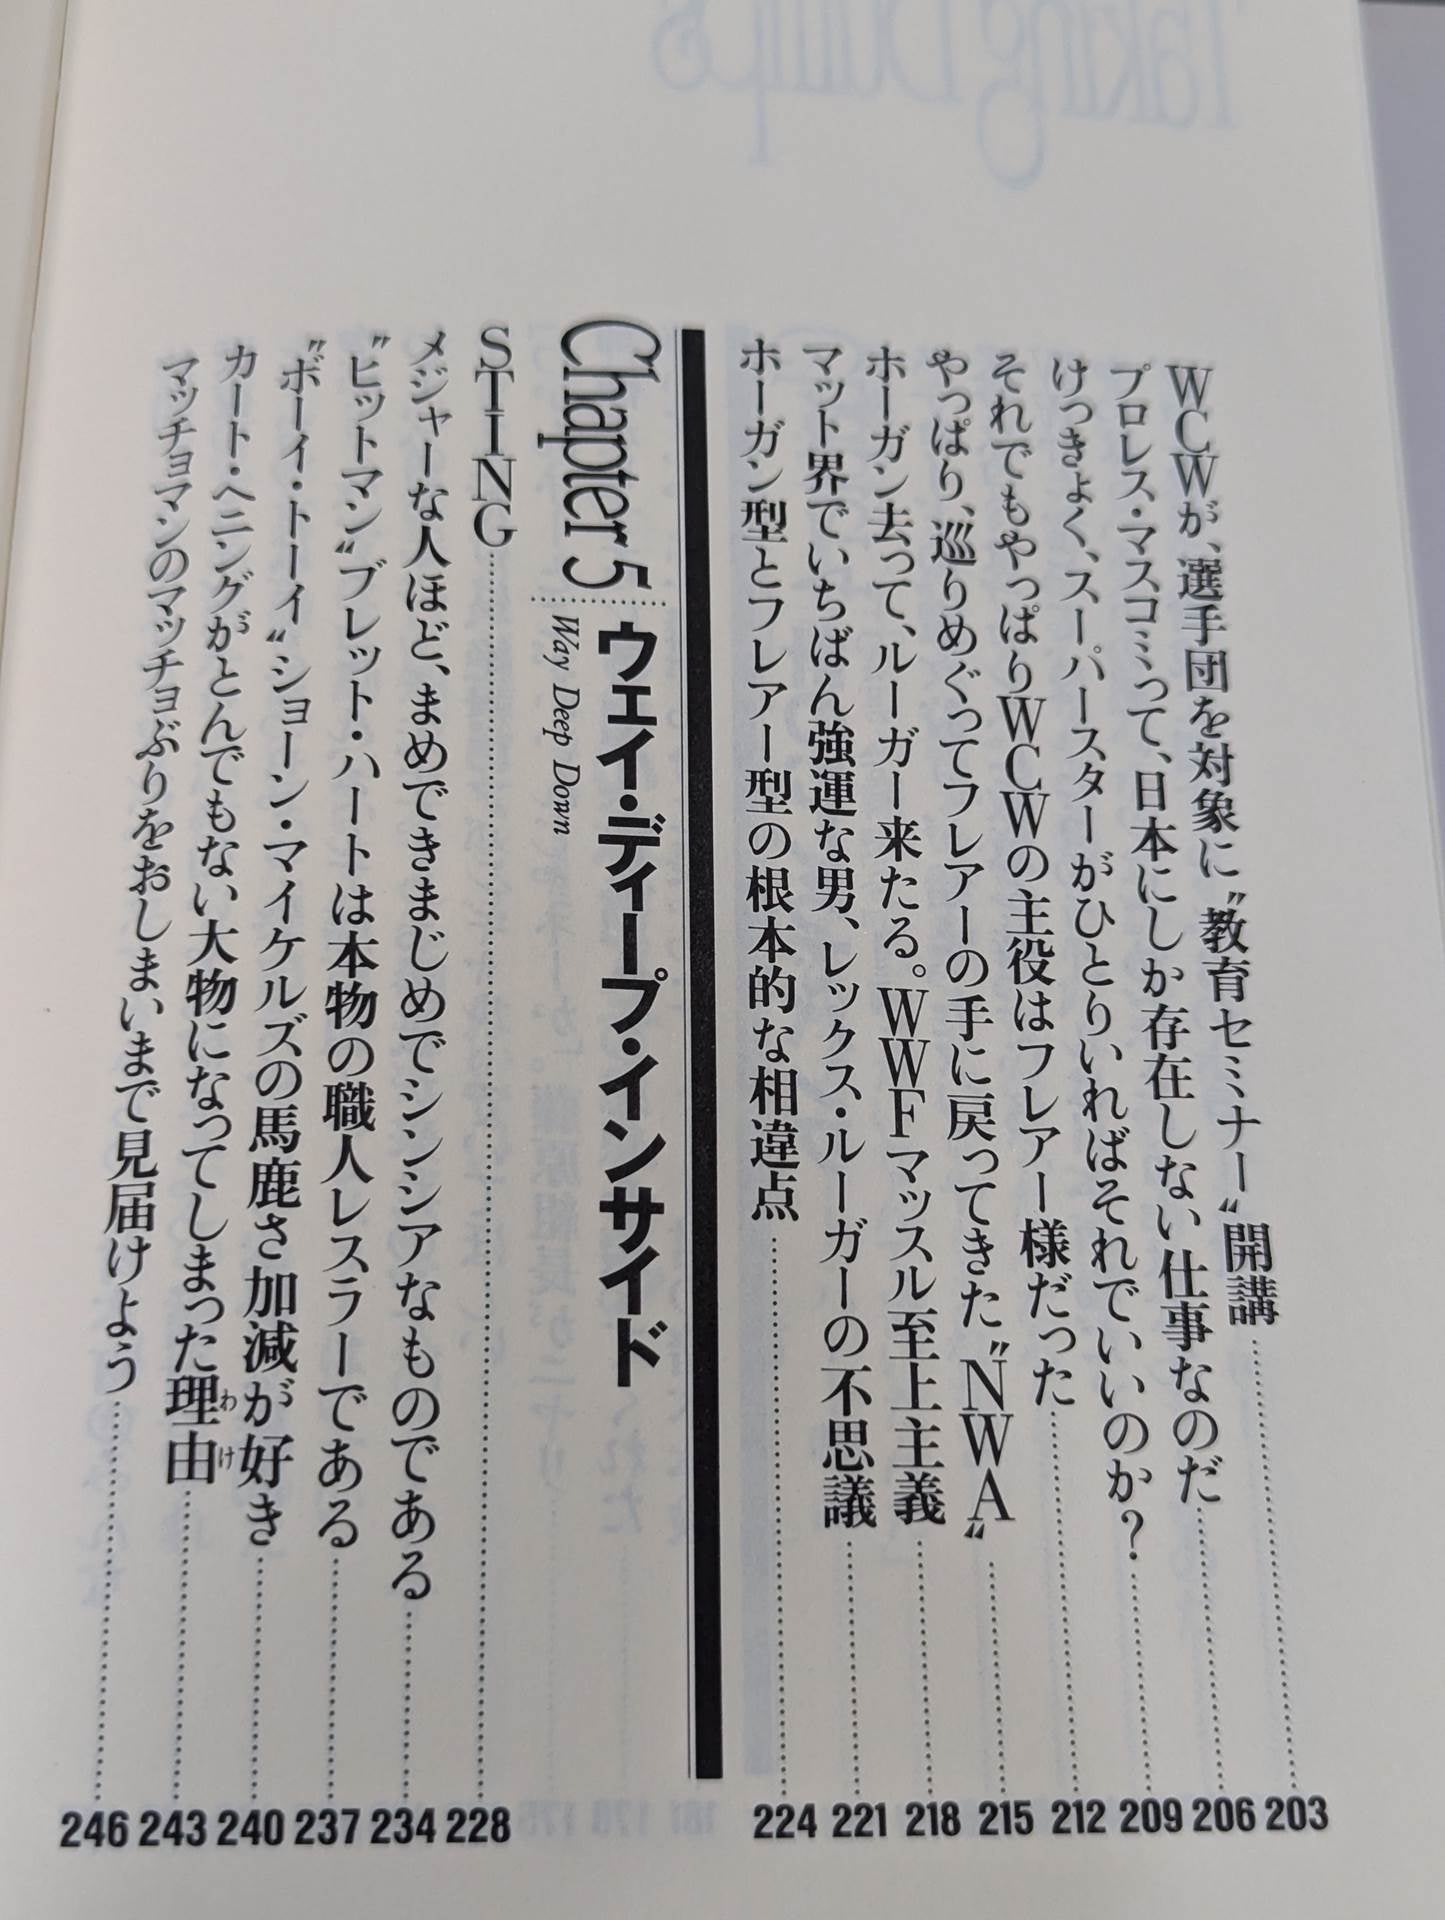 WCWが、選手団を対象に〝教育セミナー〟開講 203
プロレス・マスコミって、日本にしか存在しない仕事なのだ 206
けっきょく、スーパースターがひとりいればそれでいいのか? 209
それでもやっぱりWCWの主役はフレアー様だった 212
やっぱり、巡りめぐってフレアーの手に戻ってきた〝NWA〟 215
ホーガン去って、ルーガー来たる。WWFマッスル至上主義 218
マット界でいちばん強運な男、レックス・ルーガーの不思議 221
ホーガン型とフレアー型の根本的な相違点 224
Chapter 5 ウェイ・ディープ・インサイド
Way Deep Down
STING 228
メジャーな人ほど、まめできまじめでシンシアなものである 234
〝ヒットマン〟ブレット・ハートは本物の職人レスラーである 237
〝ボーイ・トーイ〟ショーン・マイケルズの馬鹿さ加減が好き 240
カート・ヘニングがとんでもない大物になってしまった理由 243
わけ
マッチョマンのマッチョぶりをおしまいまで見届けよう 246